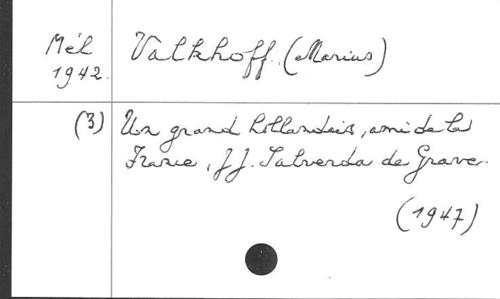 Mél Valkhoff. (Marius)
1942.
(3) Un grand hollandais, ami de la
France, J J. Salverda de Grave.
(1947)